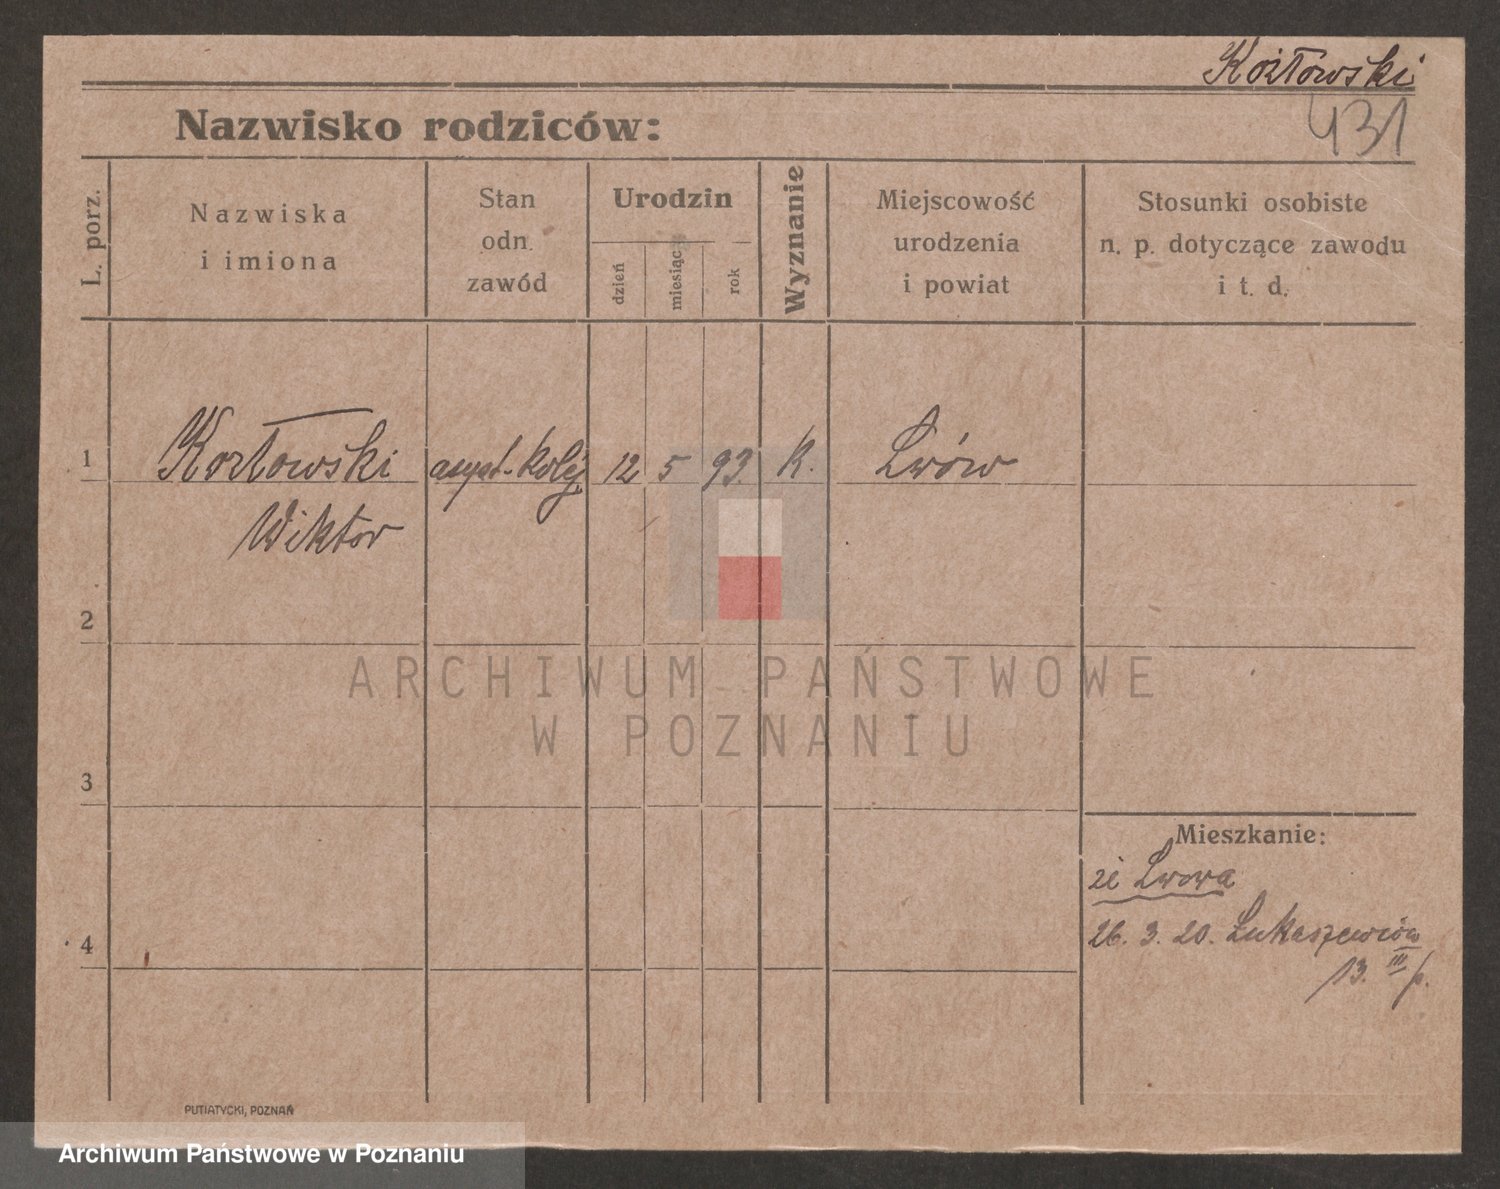 Kozłowski
431
Nazwisko rodziców:
L. porz.
Nazwiska
i imiona
Stan
odn.
zawód
Urodzin
dzień
miesiąc
rok
Wyznanie
Miejscowość
urodzenia
i powiat
Stosunki osobiste
n. p. dotyczące zawodu
i t. d.
1 Kozłowski asyst. kolej. 12 5 93. K. Lwów
Wiktor
2
ARCHIWUM PAŃSTWOWE
W POZNANIU
3
Mieszkanie:
ze Lwowa
26. 3. 20. Łukaszewicza
4
13. III p.
PUTIATYCKI, POZNAŃ
Archiwum Państwowe w Poznaniu